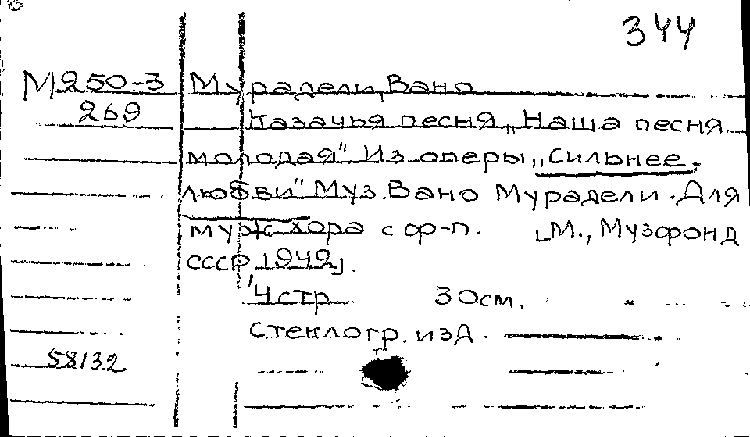 344
М250-3 Мурадели, Вано
269 Казачья песня „Наша песня
молодая" Из оперы „Сильнее
любви" Муз. Вано Мурадели. Для
муж. хора с ф-п. [М., Музфонд
СССР, 1949].
4 стр 30 см.
Стеклогр. изд.
58132